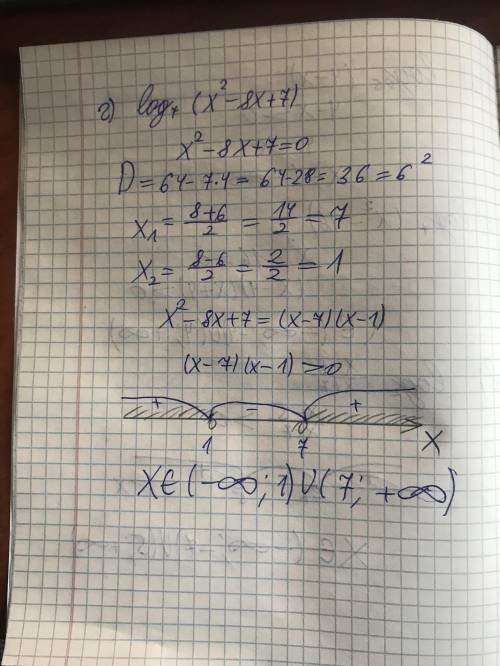 г) log₇ (x²-8x+7)
x²-8x+7=0
D=64-7·4=64-28=36=6²
x₁=8+6/2=14/2=7
x₂=8-6/2=2/2=1
x²-8x+7=(x-7)(x-1)
(x-7)(x-1)>0
+ - +
1 7 X
X∈(-∞;1)∪(7;+∞)